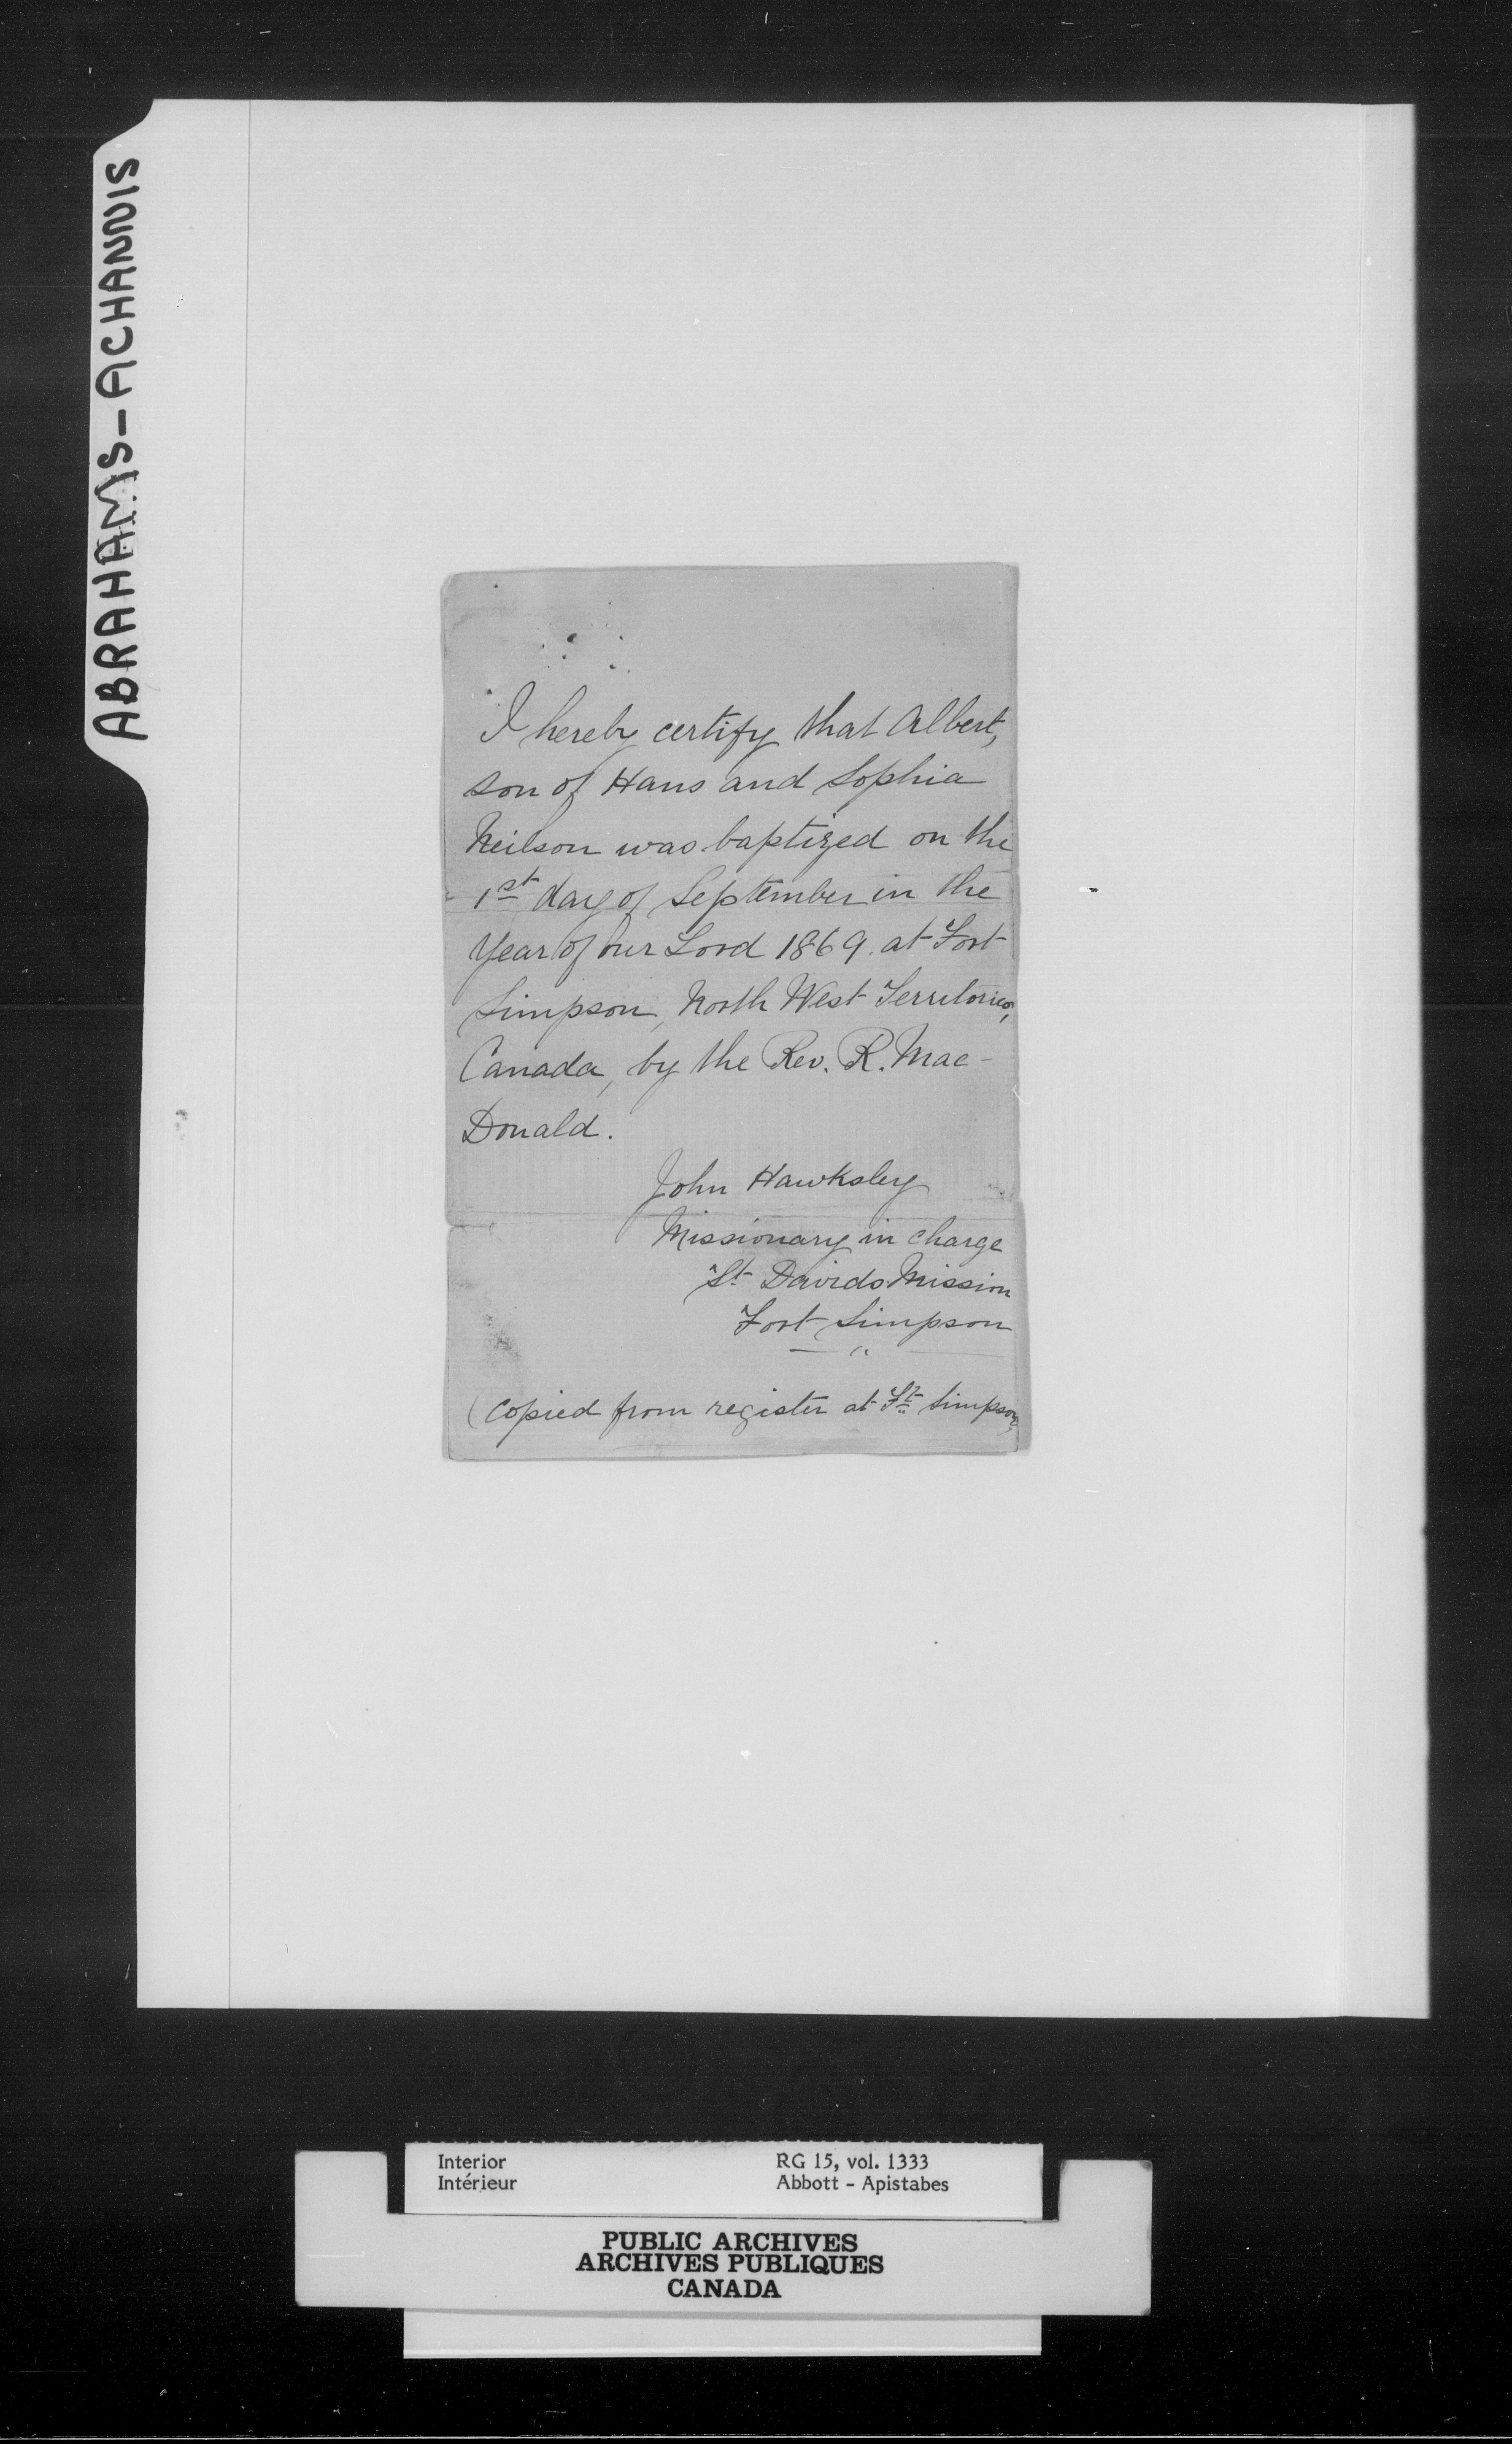 ABRAHAMS-ACHANNIS
I hereby certify that Albert,
son of Hans and Sophia
Neilson was baptized on the
1st day of September in the
Year of our Lord 1869. at Fort
Simpson, North West Territories,
Canada, by the Rev. R. Mac-
Donald.
John Hawksley
Missionary in charge
St Davids Mission
Fort Simpson
(Copied from register at Ft Simpson)
Interior RG 15, vol. 1333
Intérieur Abbott - Apistabes
PUBLIC ARCHIVES
ARCHIVES PUBLIQUES
CANADA